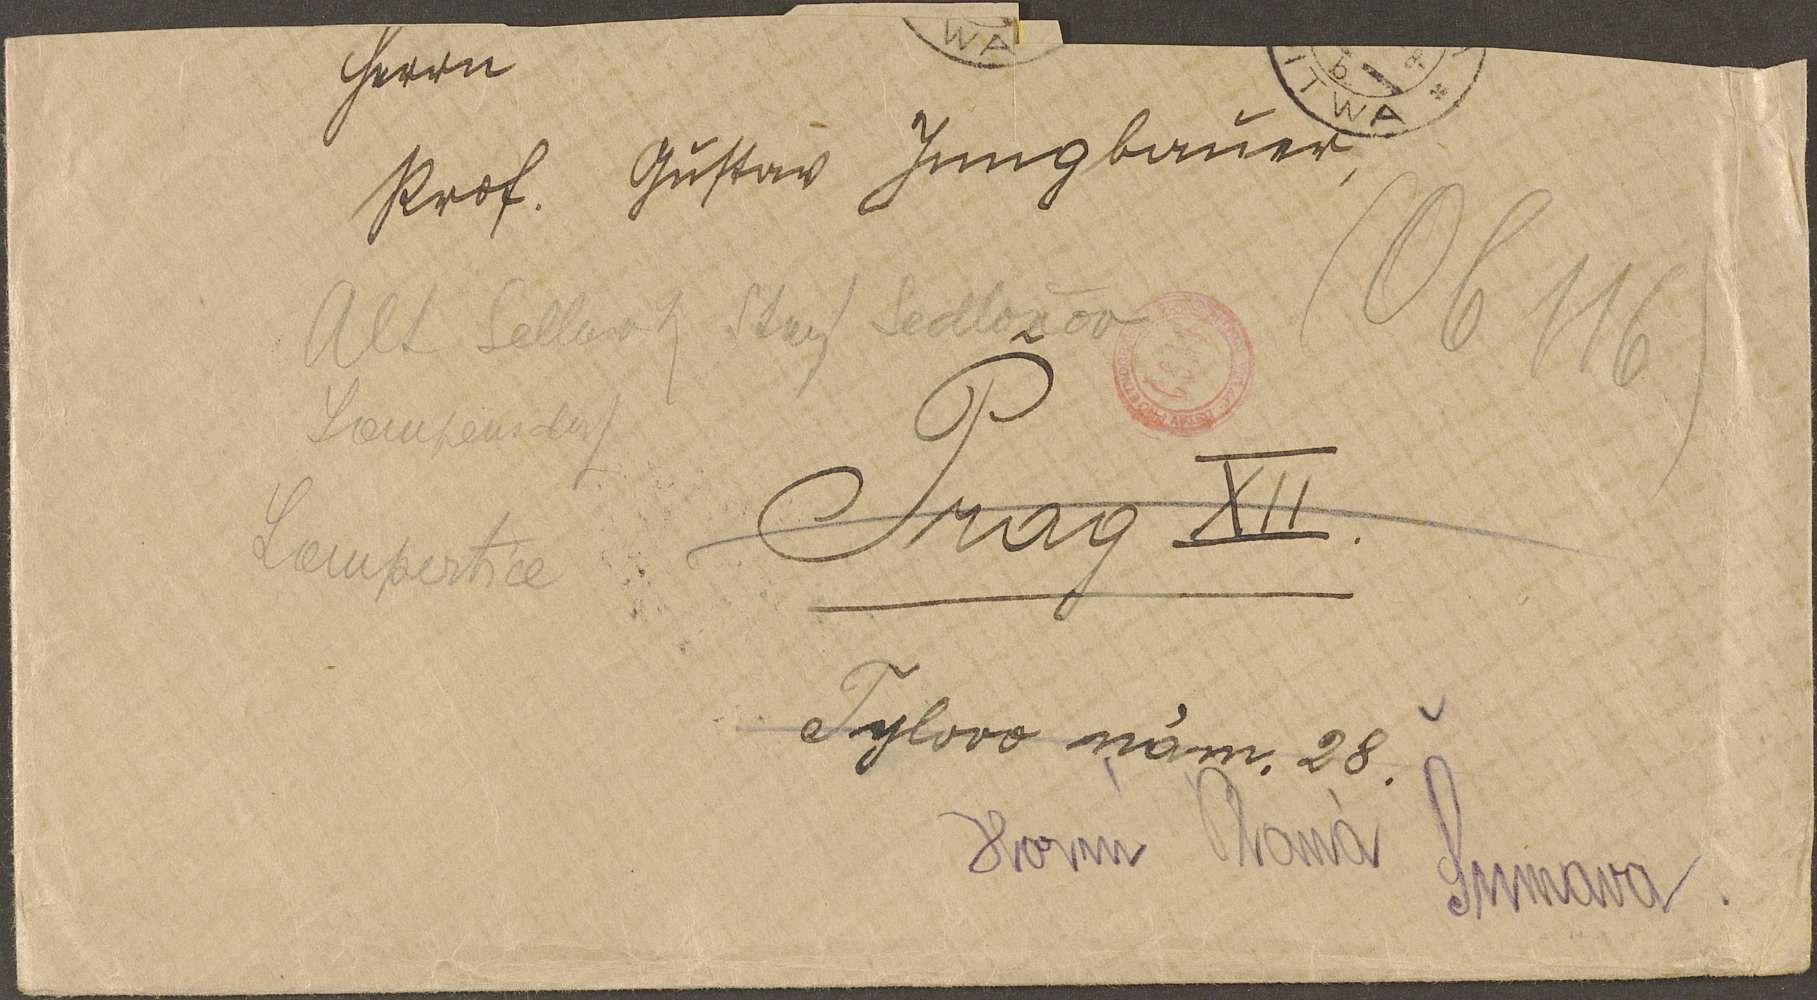 WA
ITWA *
b
Herrn
Prof. Gustav Jungbauer,
(Ob 116)
Alt Starý Sedlo
Lampersdorf
Prag XII.
Lampertice
Tylovo nám. 28.
Horní Planá Šumava.